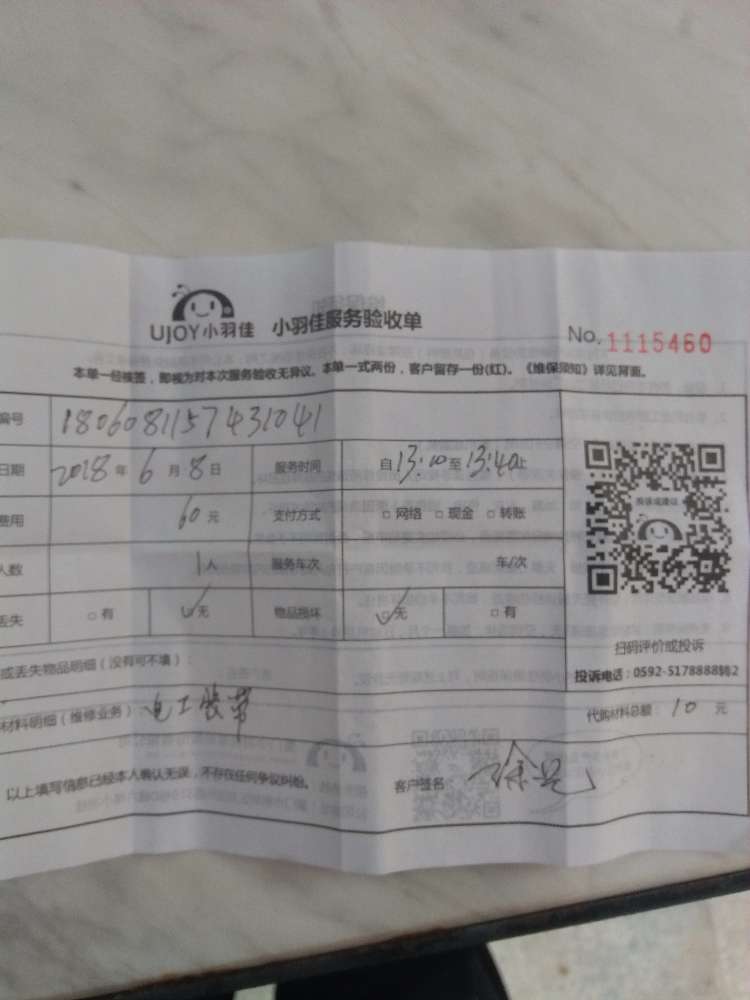 UJOY小羽佳 小羽佳服务验收单
No. 1115460
本单一经核签，即被为对本次服务验收无异议。本单一式两份，客户留存一份(红)。《维保须知》详见背面。
编号 1806081157431041
日期 2018年6月8日 服务时间 自13:00至13:40止
费用 60元 支付方式 □网络 □现金 □转账
人数 1人 服务车次 车/次
丢失 □有 ☑无 物品损坏 ☑无 □有
投诉或建议
扫码评价或投诉
投诉电话：0592-5178888转2
或丢失物品明细（没有可不填）：
材料明细（维修业务）：电工胶带 代购材料总额：10元
以上填写信息已经本人确认无误，不存在任何争议纠纷。 客户签名：徐